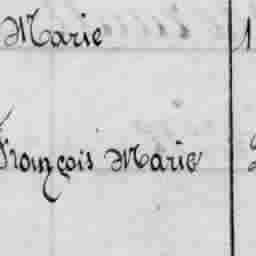 Marie 1
François Marie